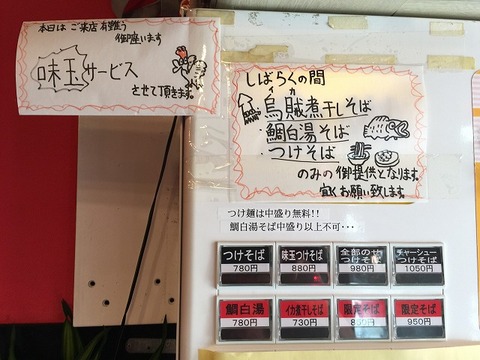 本日は ご来店 有難う
御座います
味玉サービス
させて頂きます。
しばらくの間
イカ
・烏賊煮干しそば
・鯛白湯そば
・つけそば
のみの御提供となります。
宜しくお願い致します。
つけ麺は中盛り無料!!
鯛白湯そば中盛り以上不可･･･
つけそば
780円
味玉つけそば
880円
全部のせ
つけそば
980円
チャーシュー
つけそば
1050円
鯛白湯
780円
イカ煮干しそば
730円
限定そば
850円
限定そば
950円